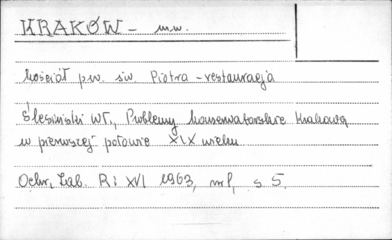 KRAKÓW - m.w.
kościół p.w. św. Piotra - restauracja
Ślesiński Wł., Problemy konserwatorskie Krakowa
w pierwszej połowie XIX wieku
Ochr. Zab. R: XVI 1963, nr 1, s 5.